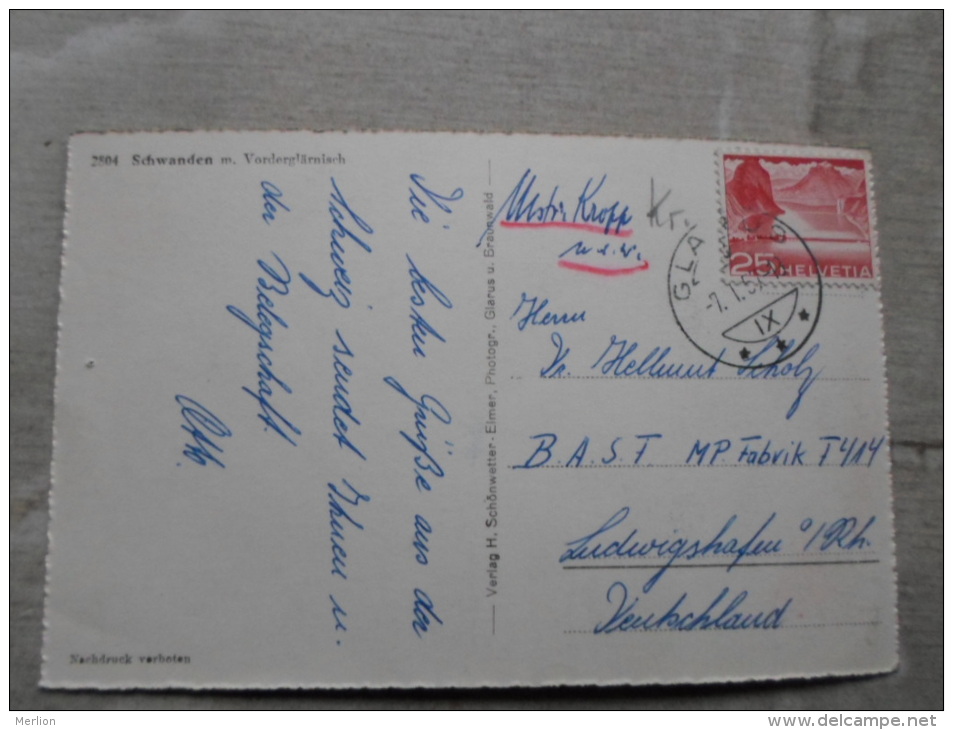 2804 Schwanden m. Vorderglärnisch
Die besten Grüße aus der
Schweiz sendet Ihnen u.
der Belegschaft
Otto.
Nachdruck verboten
Verlag H. Schönwetter-Elmer, Photogr., Glarus u. Braunwald
Kropp
u.s.w.
Kr.
25 HELVETIA
GLA
-7.1.5
IX
Herrn
Dr. Hellmut Scholz
B.A.S.F. MP. Fabrik T414
Ludwigshafen a/Rh.
Deutschland
Merlion
www.delcampe.net